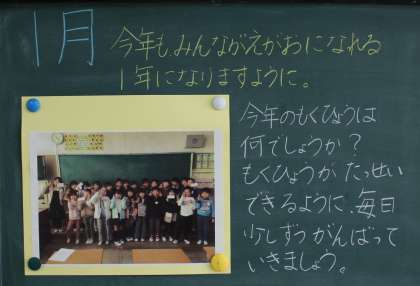 1月
今年も、みんながえがおになれる
1年になりますように。
今年のもくひょうは
何でしょうか？
もくひょうが、たっせい
できるように、毎日
少しずつがんばって
いきましょう。